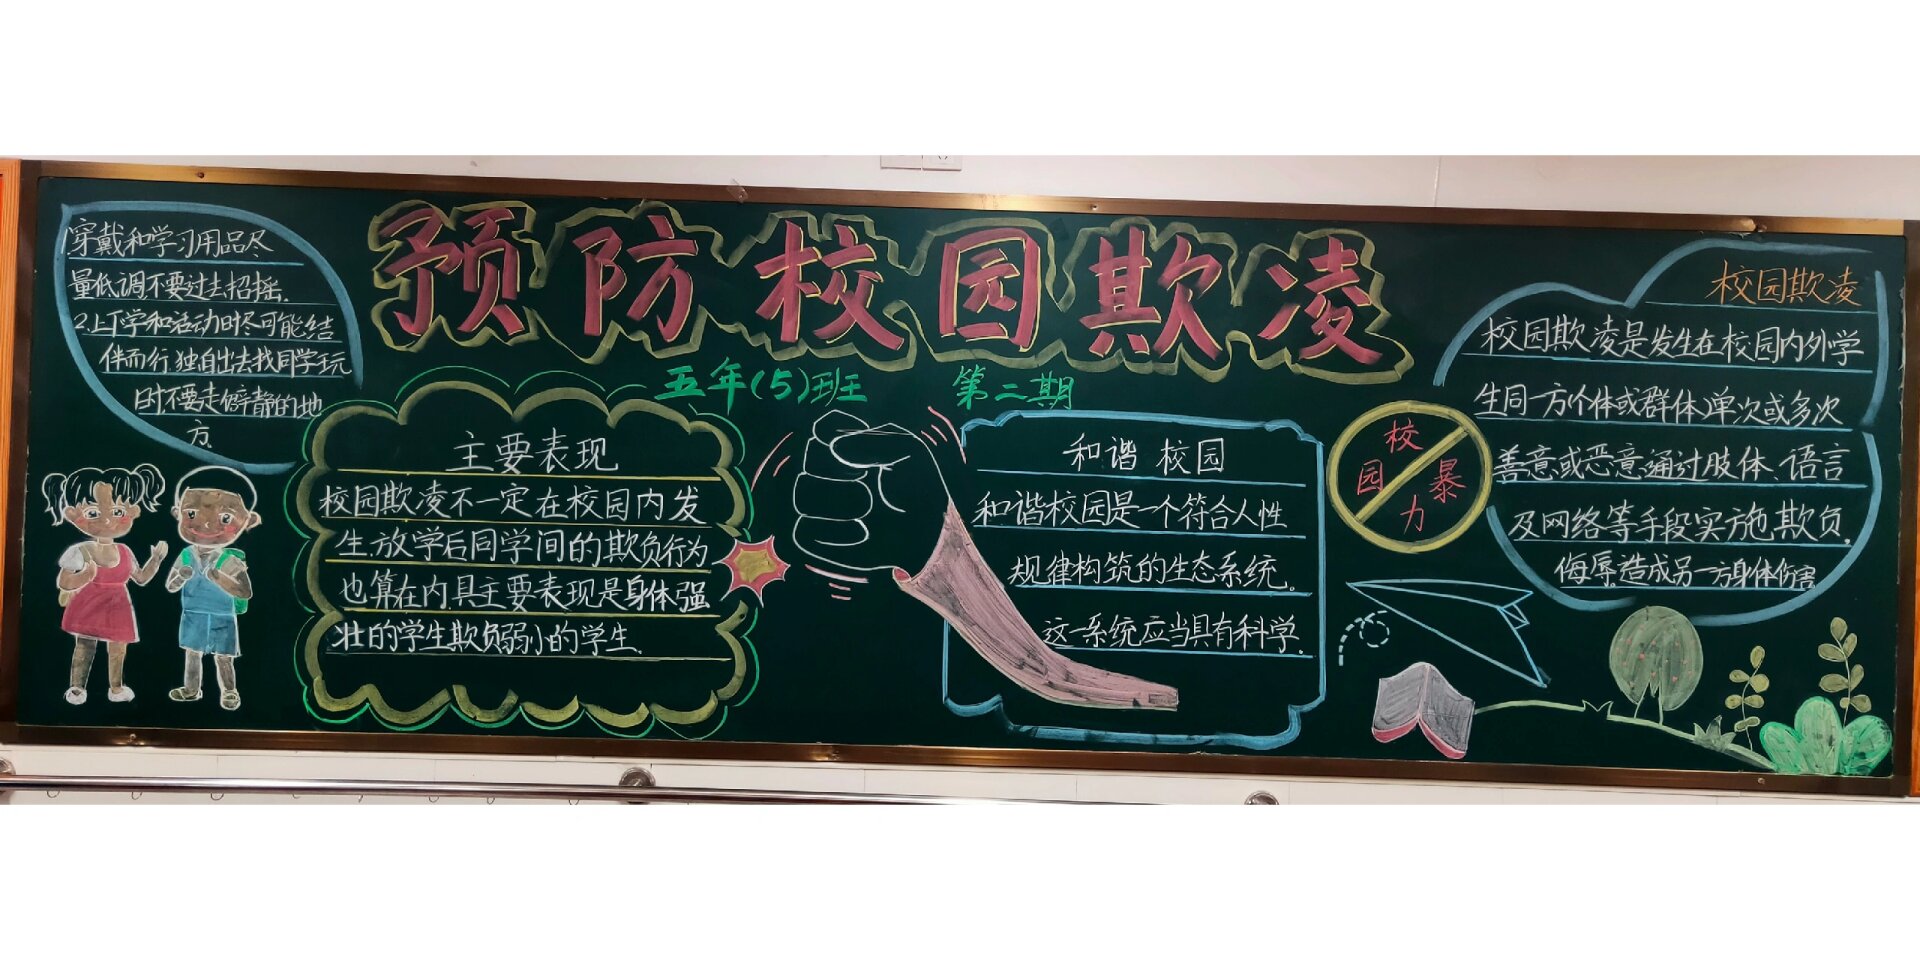 预防校园欺凌
五年(5)班 第二期
1.穿戴和学习用品尽
量低调不要过去招摇.
2.上下学和活动时尽可能结
伴而行.独自出去找同学玩
时,不要走僻静的地
方.
主要表现
校园欺凌不一定在校园内发
生,放学后同学间的欺负行为
也算在内.具主要表现是身体强
壮的学生欺负弱小的学生.
和谐 校园
和谐校园是一个符合人性
规律构筑的生态系统。
这一系统应当具有科学.
校
园
暴
力
校园欺凌
校园欺凌是发生在校园内外学
生同一方(个体或群体)单次或多次
善意或恶意通过肢体、语言
及网络等手段实施欺负,
侮辱,造成另一方身体伤害